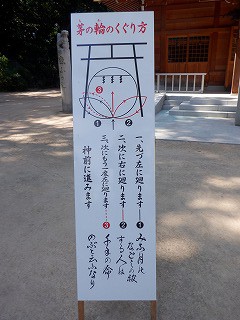 茅の輪のくぐり方
❸
❶
❷
一、先づ左に廻ります──❶
二、次に右に廻ります──❷
三、次にもう一度左に廻ります……❸
神前に進みます
みな月の
なごしの祓
する人は
千年の命
のぶと云ふなり